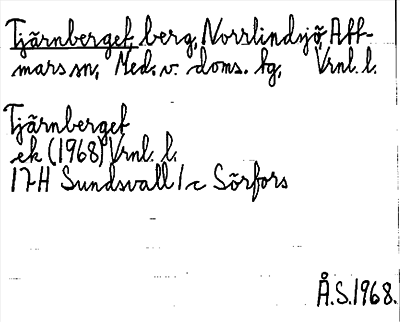 Tjärnberget, berg, Norrlindsjö, Att-
mars sn, Med. v. doms. tg, Vrnl. l.
Tjärnberget
ek (1968) Vrnl. l.
17H Sundsvall 1c Sörfors
Å.S. 1968.